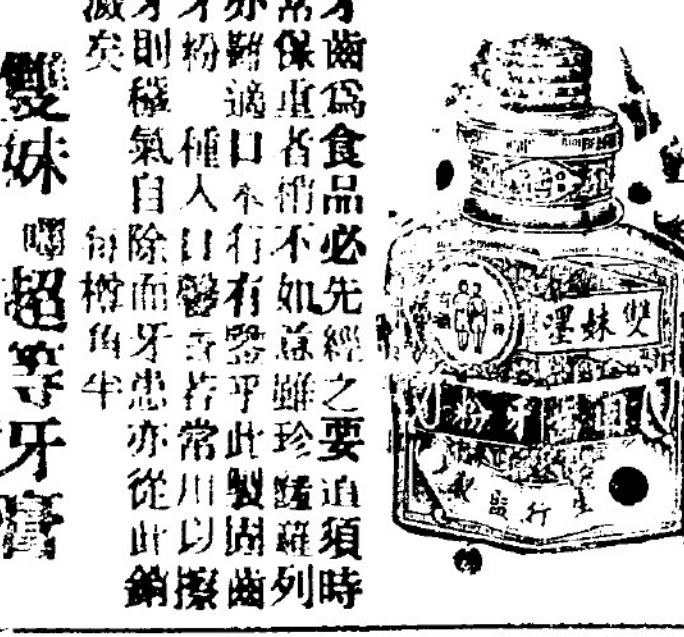 牙齒爲食品必先經之要道須時
常保重者稍不如意雖珍饈羅列
亦難適口本行有鑒乎此製固齒
牙粉 種人口馨香若常用以擦
牙則穢氣自除而牙患亦從此銷
滅矣 每樽角半
雙妹嚜超等牙膏
雙妹嚜
固齒牙粉
生行監製